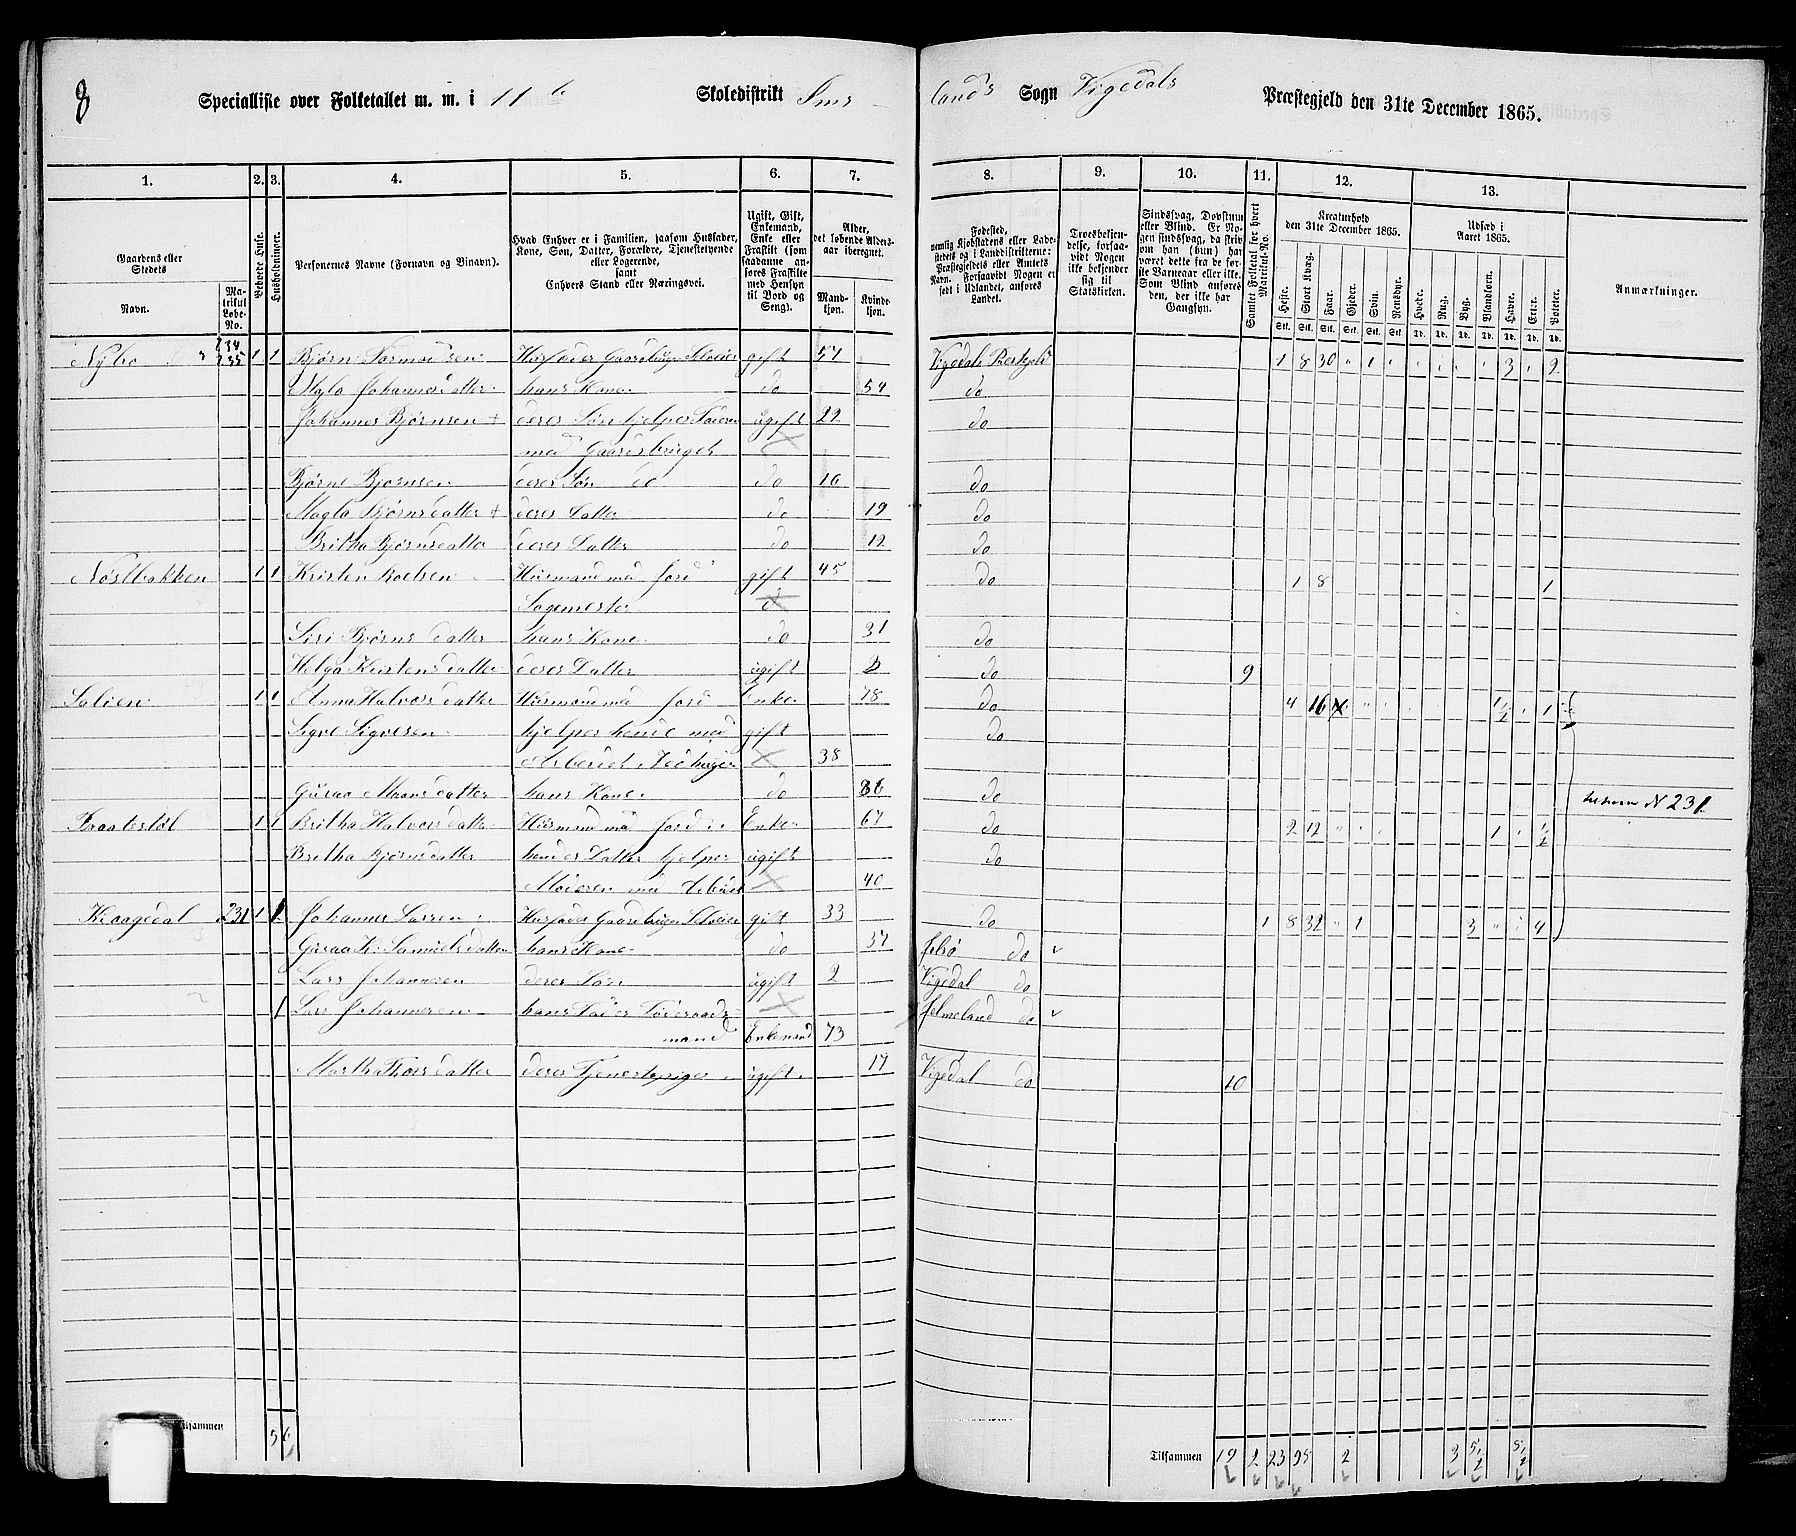 8 Specialliste over Folketallet m. m. i 11te Skoledistrikt Ims- lands Sogn Vigedals Præstegjeld den 31te December 1865.
1. 2. 3. 4. 5. 6. 7. 8. 9. 10. 11. 12. 13.
Gaardens eller Stedets
Navn. Matrikul Løbe-No.
Beboede Huse.
Husholdninger.
Personernes Navne (Fornavn og Binavn).
Hvad Enhver er i Familien, saasom Husfader, Kone, Søn, Datter, Forældre, Tjenestetyende eller Logerende, samt Enhvers Stand eller Næringsvei.
Ugift, Gift, Enkemand, Enke eller Fraskilt (som saadanne anføres Fraskilte med Hensyn til Bord og Seng).
Alder, det løbende Alders-aar iberegnet.
Mandkjøn. Kvindekjøn.
Fødested, nemlig Kjøbstadens eller Ladestedets og i Landdistrikterne: Præstegjeldets eller Amtets Navn. Forsaavidt Nogen er født i Udlandet, anføres Landet.
Troesbekjendelse, forsaavidt Nogen ikke bekjender sig til Statskirken.
Sindssvag, Døvstum eller Blind. Er Nogen sindssvag, da skriv om han (hun) har været dette fra de første Barneaar eller ikke. Som Blind anføres den, der ikke har Gangsyn.
Samlet Folketal for hvert Matrikul-No.
Kreaturhold den 31te December 1865.
Heste. Stort Kvæg. Faar. Gjeder. Svin. Rensdyr.
Udsæd i Aaret 1865.
Hvede. Rug. Byg. Blandkorn. Havre. Erter. Poteter.
Anmærkninger.
Nybø 234 235 1 1 Bjørn Tormodsen Husfader Gaardbruger Selveier gift 57 Vigedals Prestegjeld 1 8 30 " 1 " " " " " 3 " 2
Magla Johannesdatter hans Kone do 54 do
Johannes Bjørnsen + deres Søn hjelper Faderen ugift 22 do
med Gaardsbruget
Bjørne Bjørnsen deres Søn do do 16 do
Magla Bjørnsdatter + deres Datter do 19 do
Britha Bjørnsdatter deres Datter do 12 do
Nøstbakken 1 1 Kristen Roelsen Husmand med Jord gift 45 do 1 8 1
Sagemester
Siri Bjørnsdatter hans Kone do 31 do
Helga Kristensdatter deres Datter ugift 2 do 9
Salien 1 1 Anna Halvorsdatter Husmand med Jord Enke 78 do 4 16 1½ 1
Sigve Sigvesen hjelper hende med gift do
Arbeidet 38
Guraa Maansdatter hans Kone do 36 do
Braatestøl 1 1 Britha Halvorsdatter Husmand med Jord Enke 67 do 2 12 1 ½
Britha Bjørnsdatter hendes Datter hjelper ugift do
Moderen med Arbeidet 40
N 231
Kraagedal 231 1 1 Johannes Larsen Husfader Gaardbruger Selveier gift 33 do 1 8 32 " 1 3 " " 4
Guraa K. Samuelsdatter hans Kone do 37 Jelsø do
Lars Johannesen deres Søn ugift 2 Vigedal do
1 Lars Johannesen hans Fader Føderaads- Hjelmeland do
mand Enkemand 73
Martha Thorsdatter deres Tjenestepige ugift 17 Vigedal do 10
Tilsammen 5 6
Tilsammen 19 2 23 95 2 3 5½ 8½